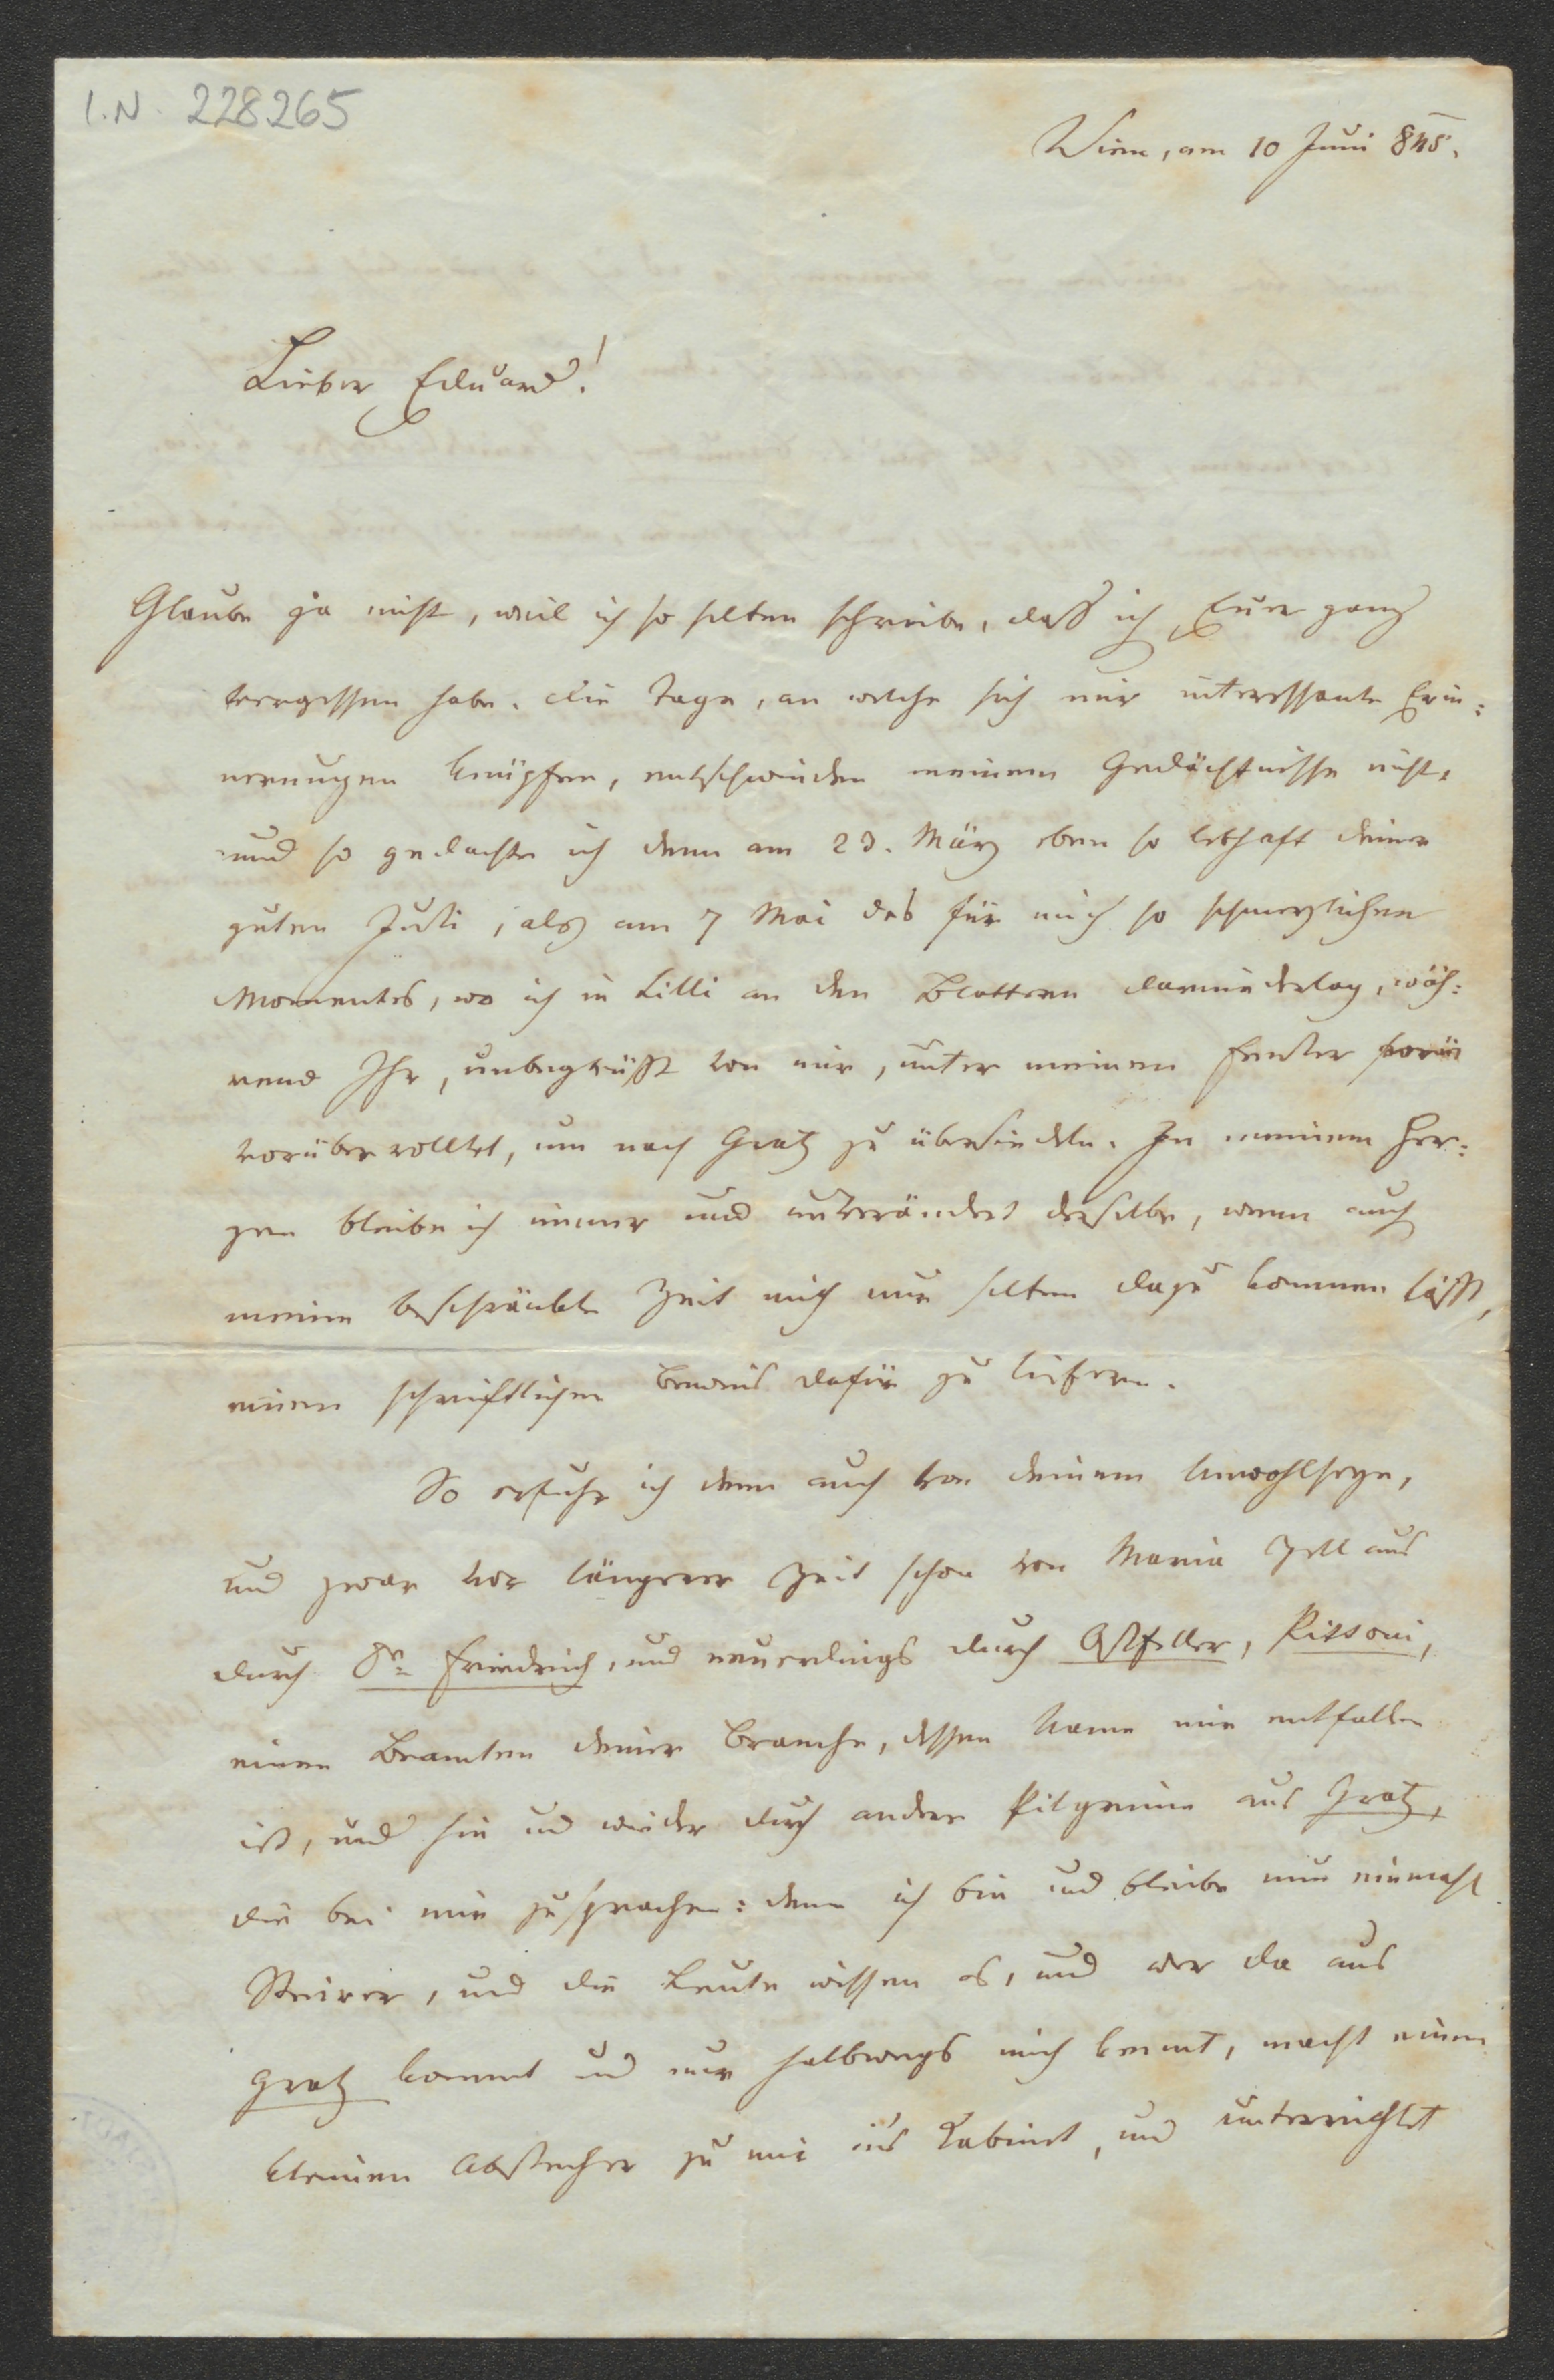 I.N. 228.265
Wien, am 10 Juni 845.
Lieber Eduard!
Glaube ja nicht, weil ich so selten schreibe, daß ich Eurer ganz
vergessen habe. Die Tage, an welche sich mir interessante Erin=
nerungen knüpfen, entschwinden meinem Gedächtnisse nicht,
und so gedachte ich denn am 23. März eben so lebhaft deiner
guten Juli, als am 7 Mai des für mich so schmerzlichen
Momentes, wo ich in Cilli an den Blattern darniederlag, wäh=
rend Ihr, unbegrüßt von mir, unter meinem Fenster
vorüberrolltet, um nach Gratz zu übersiedeln. In meinem Her=
zen bleibe ich immer und unverändert derselbe, wenn auch
meine beschränkte Zeit mich nur selten dazu kommen läßt,
einen schriftlichen Beweis dafür zu liefern.
So erfuhr ich denn auch von deinem Unwohlseyn,
und zwar vor längerer Zeit schon von Maria Zell aus
durch Dr. Friedrich, und neuerdings durch Astfeller, Pittoni,
einen Beamten deiner Branche, dessen Name mir entfallen
ist, und hin und wieder durch andere Pilgrime aus Gratz,
die bei mir zusprachen: denn ich bin und bleibe nun einmahl
Steirer, und die Leute wissen es, und wer da aus
Gratz kommt und nur halbwegs mich kennt, macht einen
kleinen Abstecher zu mir in's Kabinet, und unterrichtet